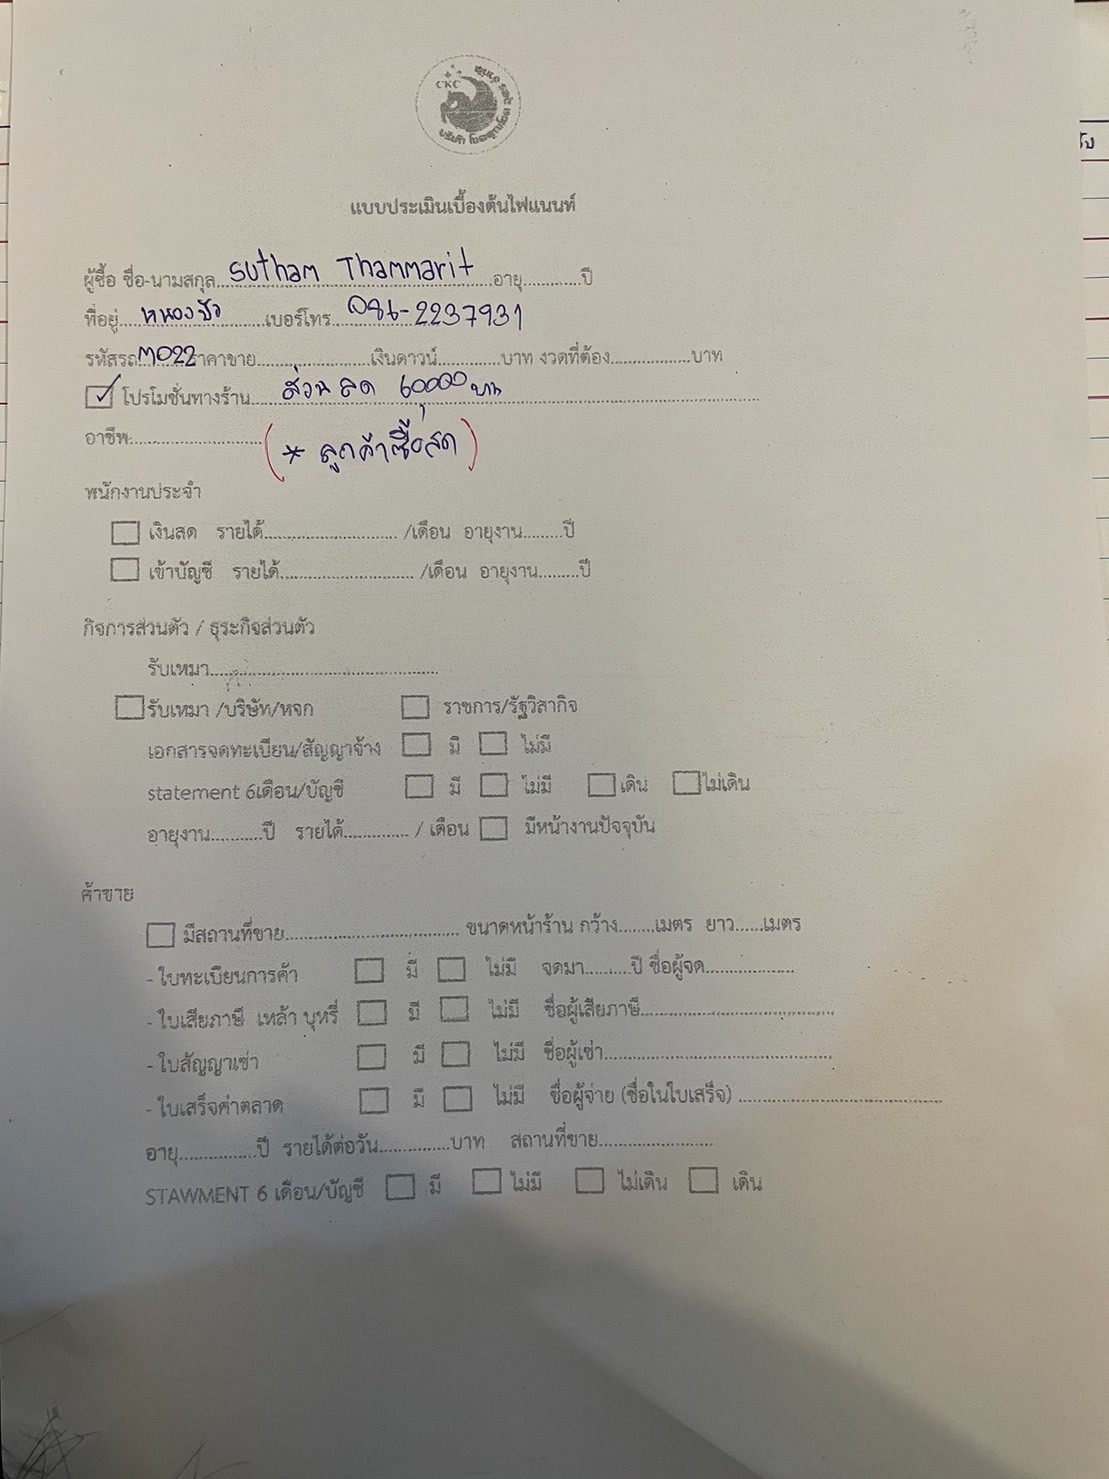 CKC
แบบประเมินเบื้องต้นไฟแนนท์
ผู้ซื้อ ชื่อ-นามสกุล Sutham Thammarit อายุ............ปี
ที่อยู่ หนองบัว เบอร์โทร 086-2237931
รหัสรถ M022 ราคาขาย....................เงินดาวน์............บาท งวดที่ต้อง................บาท
โปรโมชั่นทางร้าน ส่วนลด 60,000 บาท
อาชีพ:.......................... (* ลูกค้าซื้อสด)
พนักงานประจำ
เงินสด รายได้........................... /เดือน อายุงาน.........ปี
เข้าบัญชี รายได้........................... /เดือน อายุงาน.........ปี
กิจการส่วนตัว / ธุระกิจส่วนตัว
รับเหมา..............................................
รับเหมา /บริษัท/หจก ราชการ/รัฐวิสากิจ
เอกสารจดทะเบียน/สัญญาจ้าง มี ไม่มี
statement 6เดือน/บัญชี มี ไม่มี เดิน ไม่เดิน
อายุงาน...........ปี รายได้.............. / เดือน มีหน้างานปัจจุบัน
ค้าขาย
มีสถานที่ขาย..................................... ขนาดหน้าร้าน กว้าง........เมตร ยาว......เมตร
- ใบทะเบียนการค้า มี ไม่มี จดมา..........ปี ชื่อผู้จด...................
- ใบเสียภาษี เหล้า บุหรี่ มี ไม่มี ชื่อผู้เสียภาษี..........................................
- ใบสัญญาเช่า มี ไม่มี ชื่อผู้เช่า.................................................
- ใบเสร็จค่าตลาด มี ไม่มี ชื่อผู้จ่าย (ชื่อในใบเสร็จ) ............................................
อายุ................ปี รายได้ต่อวัน...............บาท สถานที่ขาย.........................
STAWMENT 6 เดือน/บัญชี มี ไม่มี ไม่เดิน เดิน